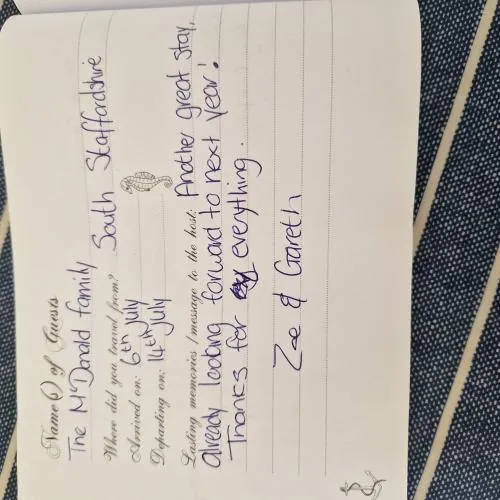 Name(s) of Guests
The McDonald family
Where did you travel from? South Staffordshire
Arrived on: 6th July
Departing on: 14th July
Lasting memories / message to the host: Another great stay,
already looking forward to next year!
Thanks for everything.
Zoe & Gareth